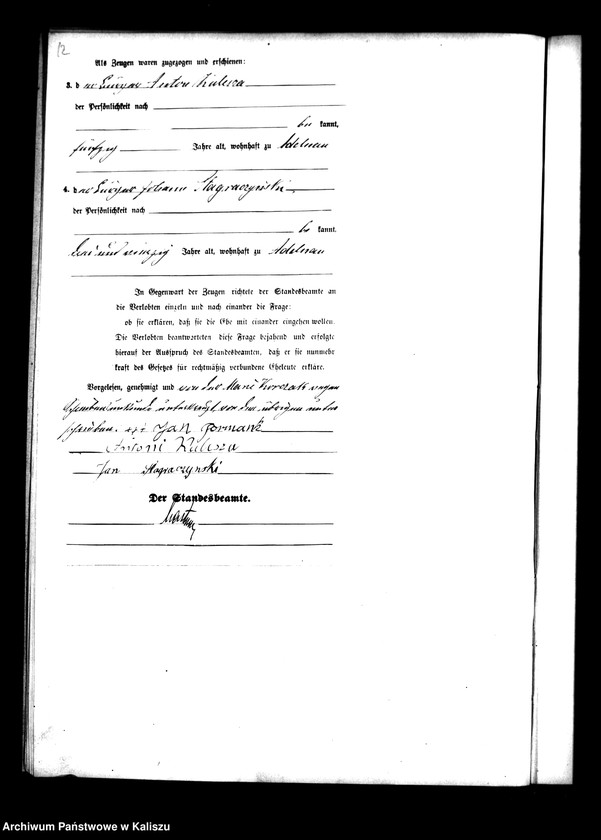 12
Als Zeugen waren zugezogen und erschienen:
3. der Bürger Anton Kulesza
der Persönlichkeit nach
be kannt,
fünfzig Jahre alt, wohnhaft zu Adelnau
4. der Bürger Johann Stagraczynski
der Persönlichkeit nach
be kannt.
und vierzig Jahre alt, wohnhaft zu Adelnau
In Gegenwart der Zeugen richtete der Standesbeamte an
die Verlobten einzeln und nach einander die Frage:
ob sie erklären, daß sie die Ehe mit einander eingehen wollen.
Die Verlobten beantworteten diese Frage bejahend und erfolgte
hierauf der Ausspruch des Standesbeamten, daß er sie nunmehr
kraft des Gesetzes für rechtmäßig verbundene Eheleute erkläre.
Vorgelesen, genehmigt und von der Marie wegen
Schreibensunkunde unterkreuzt, von den übrigen unter
schrieben. +++ Jan
Antoni Kulesza
Jan Stagraczynski
Der Standesbeamte.
Archiwum Państwowe w Kaliszu